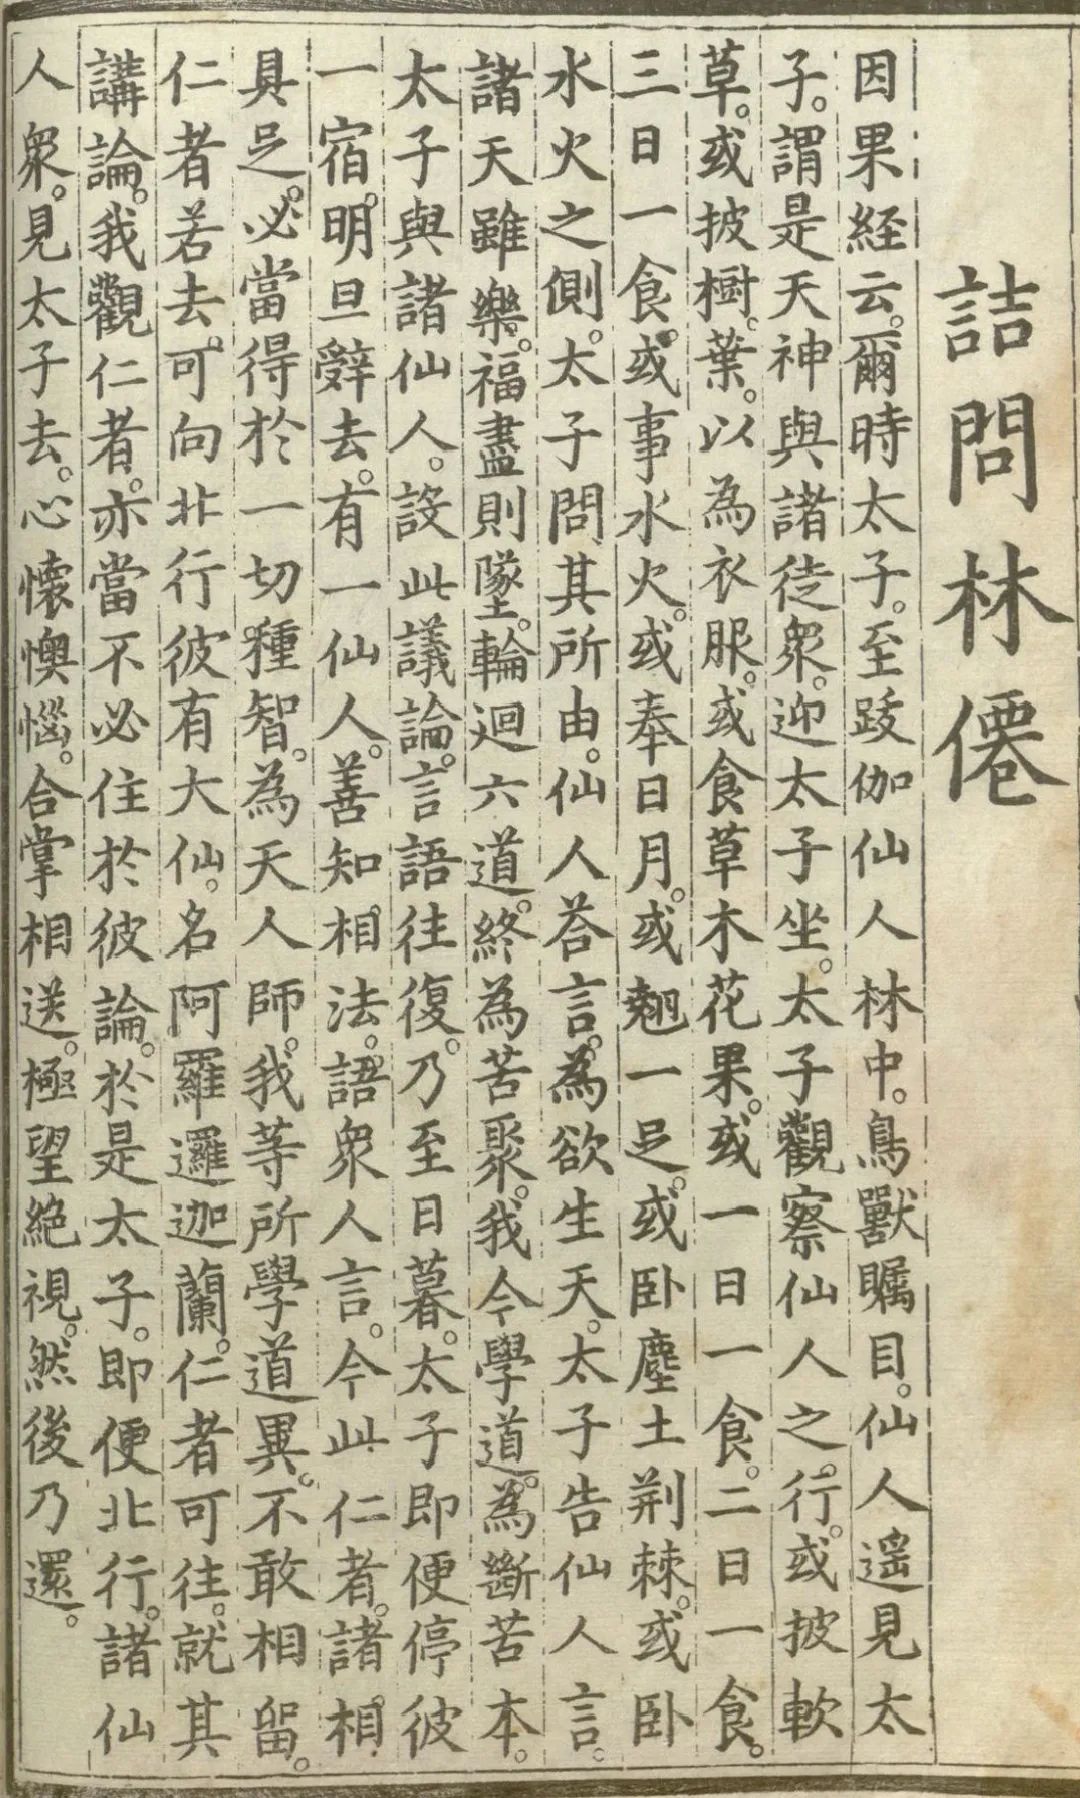 詰問林僊
因果経云。爾時太子。至跋伽仙人林中。鳥獸矚目。仙人遥見太
子。謂是天神與諸徒眾。迎太子坐。太子觀察仙人之行。或披軟
草。或披樹葉。以為衣服。或食草木花果。或一日一食。二日一食。
三日一食。或事水火。或奉日月。或翹一足。或卧塵土荆棘。或卧
水火之側。太子問其所由。仙人荅言。為欲生天。太子告仙人言。
諸天雖樂。福盡則墜。輪迴六道。終為苦聚。我今學道。為斷苦本。
太子與諸仙人。設此議論。言語往復。乃至日暮。太子即便停彼
一宿。明旦辭去。有一仙人。善知相法。語眾人言。今此仁者。諸相
具足。必當得於一切種智。為天人師。我等所學道異。不敢相留。
仁者若去。可向北行彼有大仙。名阿羅邏迦蘭。仁者可往。就其
講論。我觀仁者。亦當不必住於彼論。於是太子。即便北行。諸仙
人眾。見太子去。心懷懊惱。合掌相送。極望絕視。然後乃還。